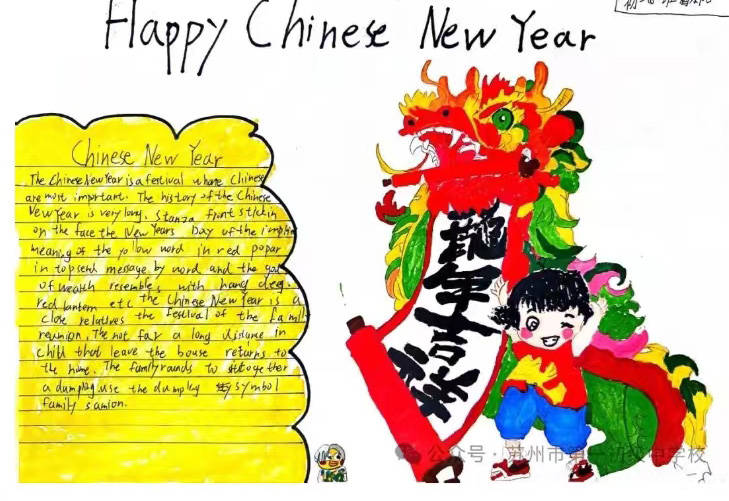 Happy Chinese New Year
Chinese New Year
The Chinese New Year is a festival where Chinese
are most important. The history of the Chinese
New Year is very long. Stanza front stickin
on the face the New Years Day of the implic
meaning of the yollow word in red popar
in topsend message by word and the god
of wealth resembles with hang deg.
red lantern etc the Chinese New Year is a
close relatives the festival of the famil
reunion. The not far a long distance in
child that leave the house returns to
the home. The family rounds to sittogether
a dumpling use the dumpling symbol
family samion.
龍年吉祥
公众号·苏州市第一初级中学校